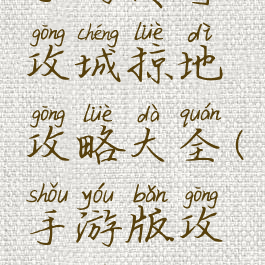 gōng chéng lüè dì
攻城掠地
gōng lüè dà quán
攻略大全(
shǒu yóu bǎn gōng
手游版攻